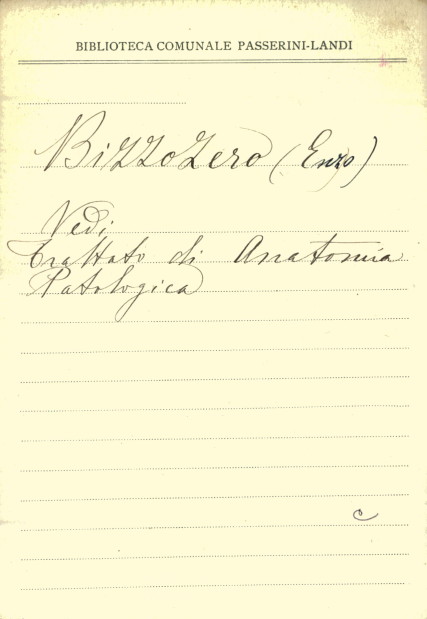 BIBLIOTECA COMUNALE PASSERINI-LANDI
Bizzozero (Enzo)
Vedi
Trattato di Anatomia
Patologica
c